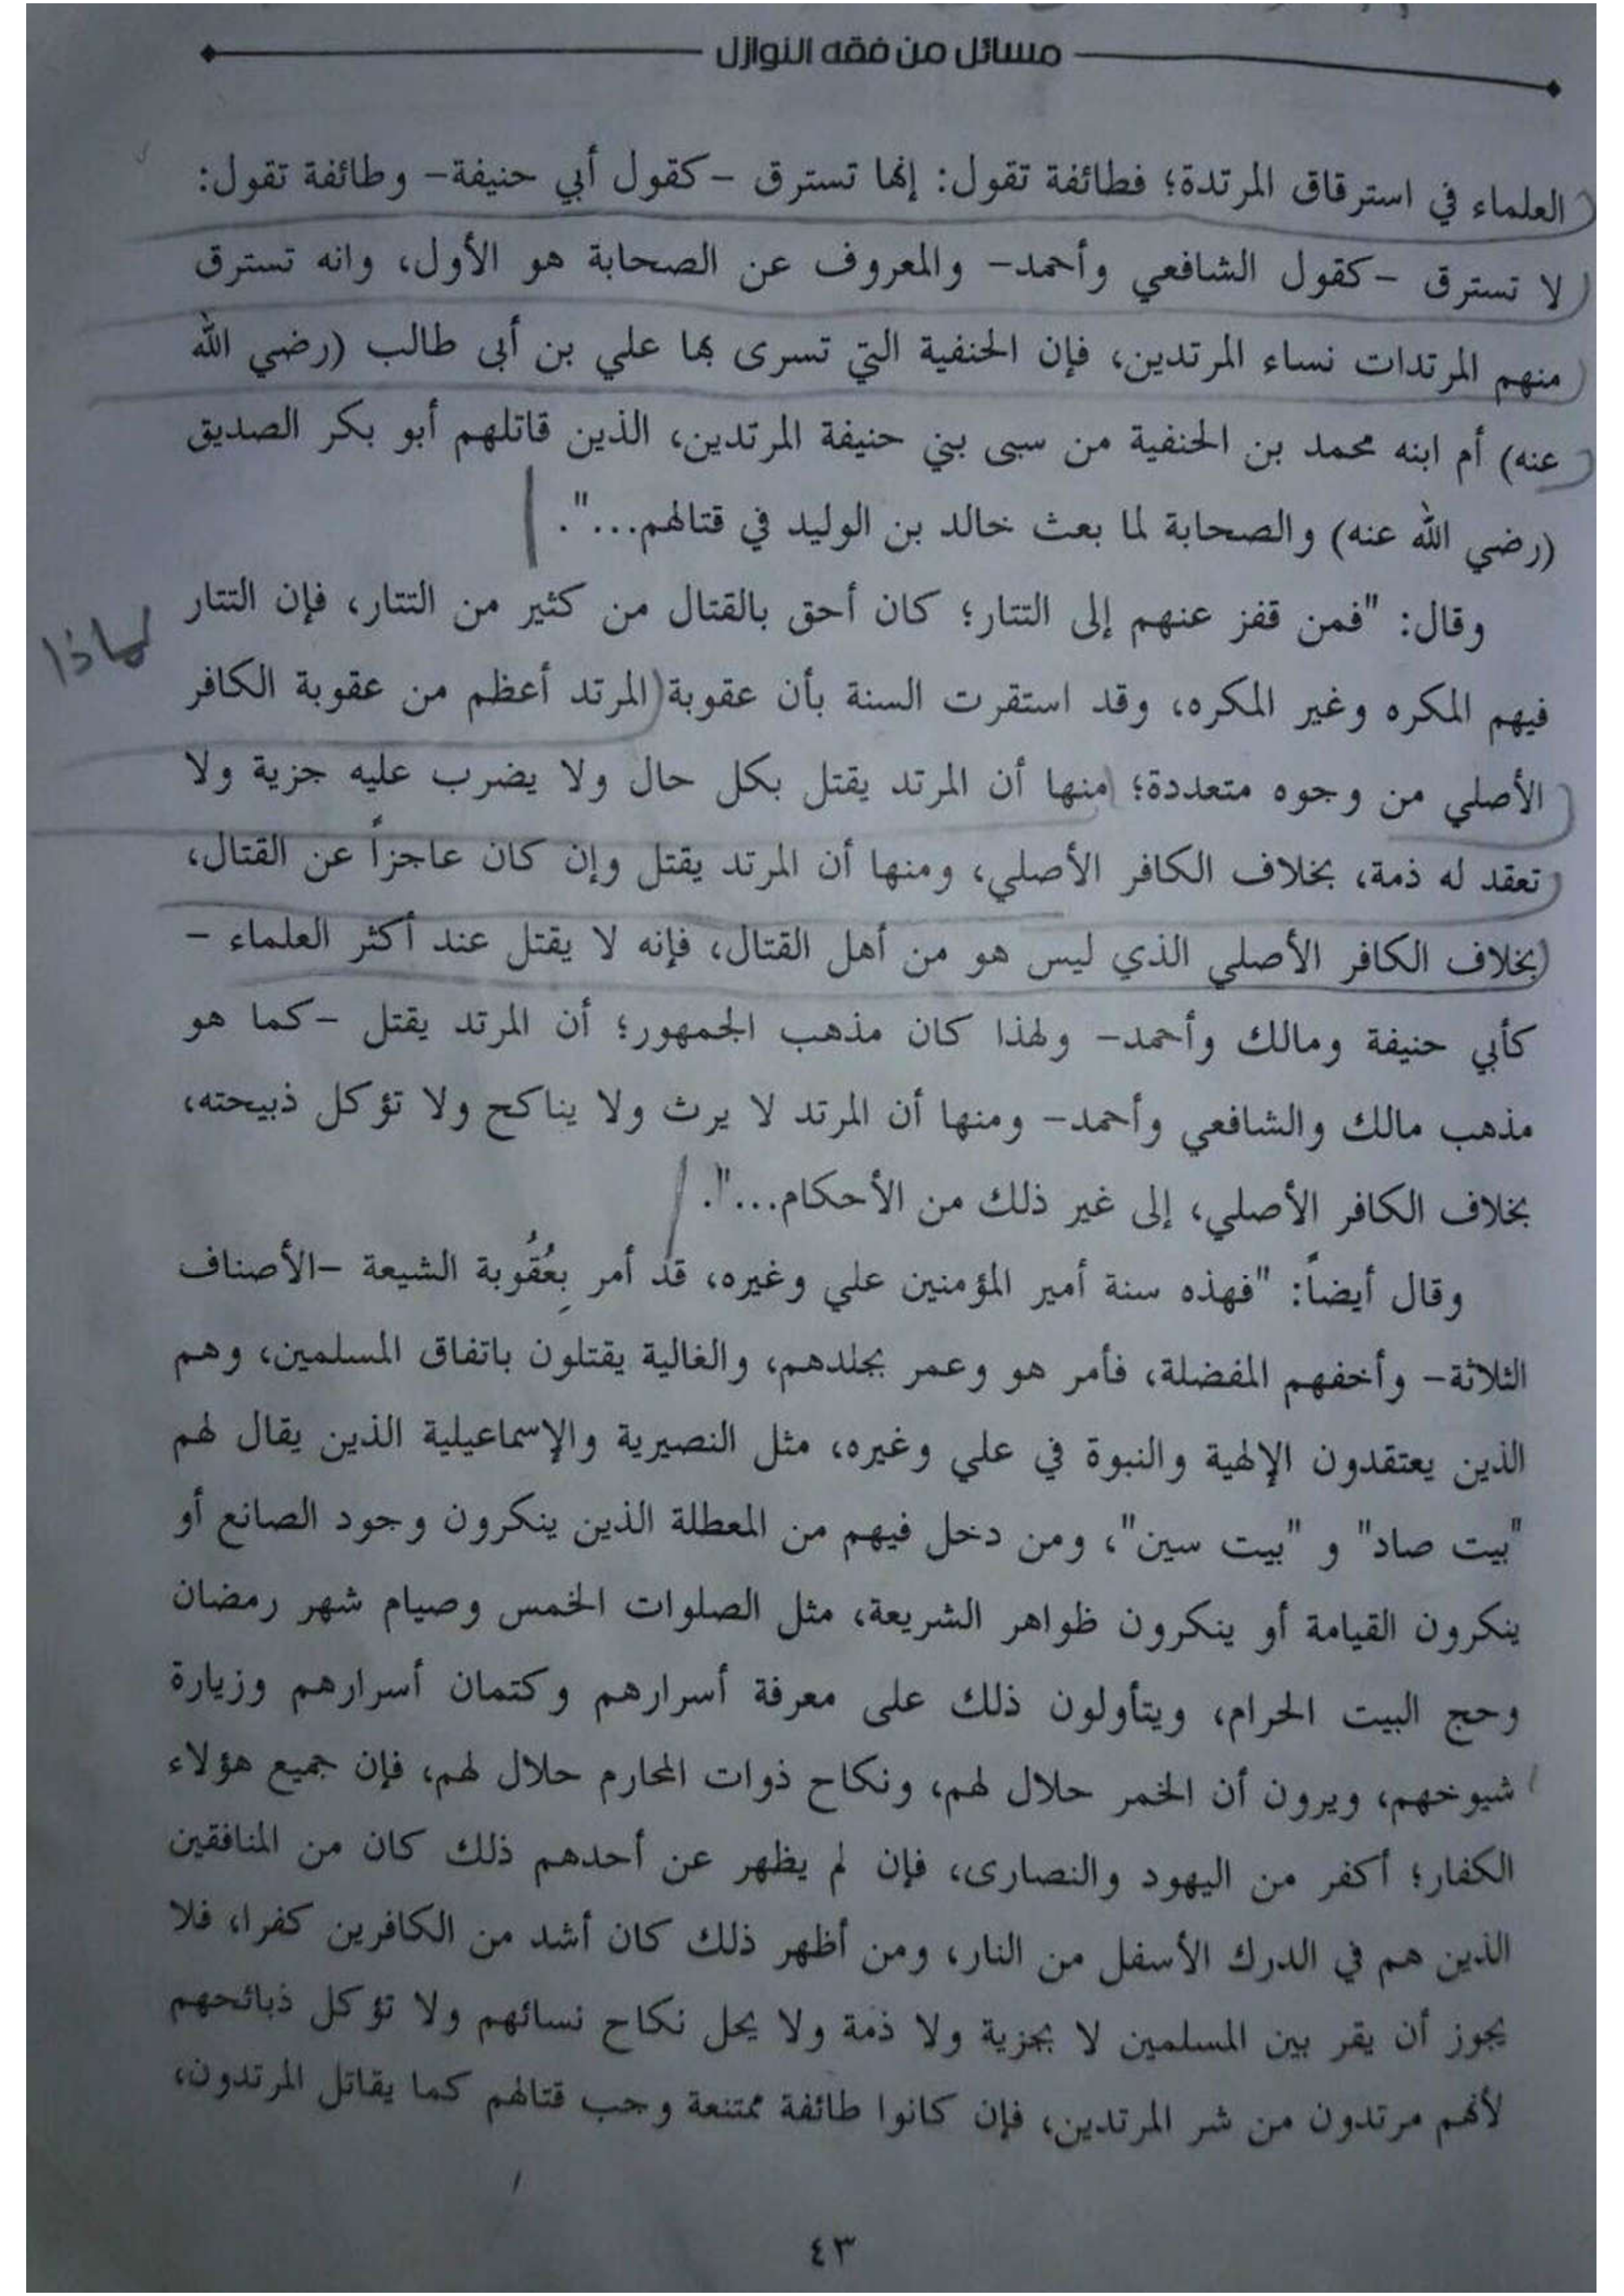 مسائل من فقه النوازل
العلماء في استرقاق المرتدة؛ فطائفة تقول: إنها تسترق -كقول أبي حنيفة- وطائفة تقول:
لا تسترق -كقول الشافعي وأحمد- والمعروف عن الصحابة هو الأول، وانه تسترق
منهم المرتدات نساء المرتدين، فإن الحنفية التي تسرى بها علي بن أبى طالب (رضي الله
عنه) أم ابنه محمد بن الحنفية من سبى بني حنيفة المرتدين، الذين قاتلهم أبو بكر الصديق
(رضي الله عنه) والصحابة لما بعث خالد بن الوليد في قتالهم...".
وقال: "فمن قفز عنهم إلى التتار؛ كان أحق بالقتال من كثير من التتار، فإن التتار
لماذا
فيهم المكره وغير المكره، وقد استقرت السنة بأن عقوبة المرتد أعظم من عقوبة الكافر
الأصلي من وجوه متعددة؛ منها أن المرتد يقتل بكل حال ولا يضرب عليه جزية ولا
تعقد له ذمة، بخلاف الكافر الأصلي، ومنها أن المرتد يقتل وإن كان عاجزاً عن القتال،
بخلاف الكافر الأصلي الذي ليس هو من أهل القتال، فإنه لا يقتل عند أكثر العلماء -
كأبي حنيفة ومالك وأحمد- ولهذا كان مذهب الجمهور؛ أن المرتد يقتل -كما هو
مذهب مالك والشافعي وأحمد- ومنها أن المرتد لا يرث ولا يناكح ولا تؤكل ذبيحته،
بخلاف الكافر الأصلي، إلى غير ذلك من الأحكام...".
وقال أيضاً: "فهذه سنة أمير المؤمنين علي وغيره، قد أمر بِعُقُوبة الشيعة -الأصناف
الثلاثة- وأخفهم المفضلة، فأمر هو وعمر بجلدهم، والغالية يقتلون باتفاق المسلمين، وهم
الذين يعتقدون الإلهية والنبوة في علي وغيره، مثل النصيرية والإسماعيلية الذين يقال لهم
"بيت صاد" و "بيت سين"، ومن دخل فيهم من المعطلة الذين ينكرون وجود الصانع أو
ينكرون القيامة أو ينكرون ظواهر الشريعة، مثل الصلوات الخمس وصيام شهر رمضان
وحج البيت الحرام، ويتأولون ذلك على معرفة أسرارهم وكتمان أسرارهم وزيارة
شيوخهم، ويرون أن الخمر حلال لهم، ونكاح ذوات المحارم حلال لهم، فإن جميع هؤلاء
الكفار؛ أكفر من اليهود والنصارى، فإن لم يظهر عن أحدهم ذلك كان من المنافقين
الذين هم في الدرك الأسفل من النار، ومن أظهر ذلك كان أشد من الكافرين كفرا، فلا
يجوز أن يقر بين المسلمين لا بجزية ولا ذمة ولا يحل نكاح نسائهم ولا تؤكل ذبائحهم
لأنهم مرتدون من شر المرتدين، فإن كانوا طائفة ممتنعة وجب قتالهم كما يقاتل المرتدون،
٤٣